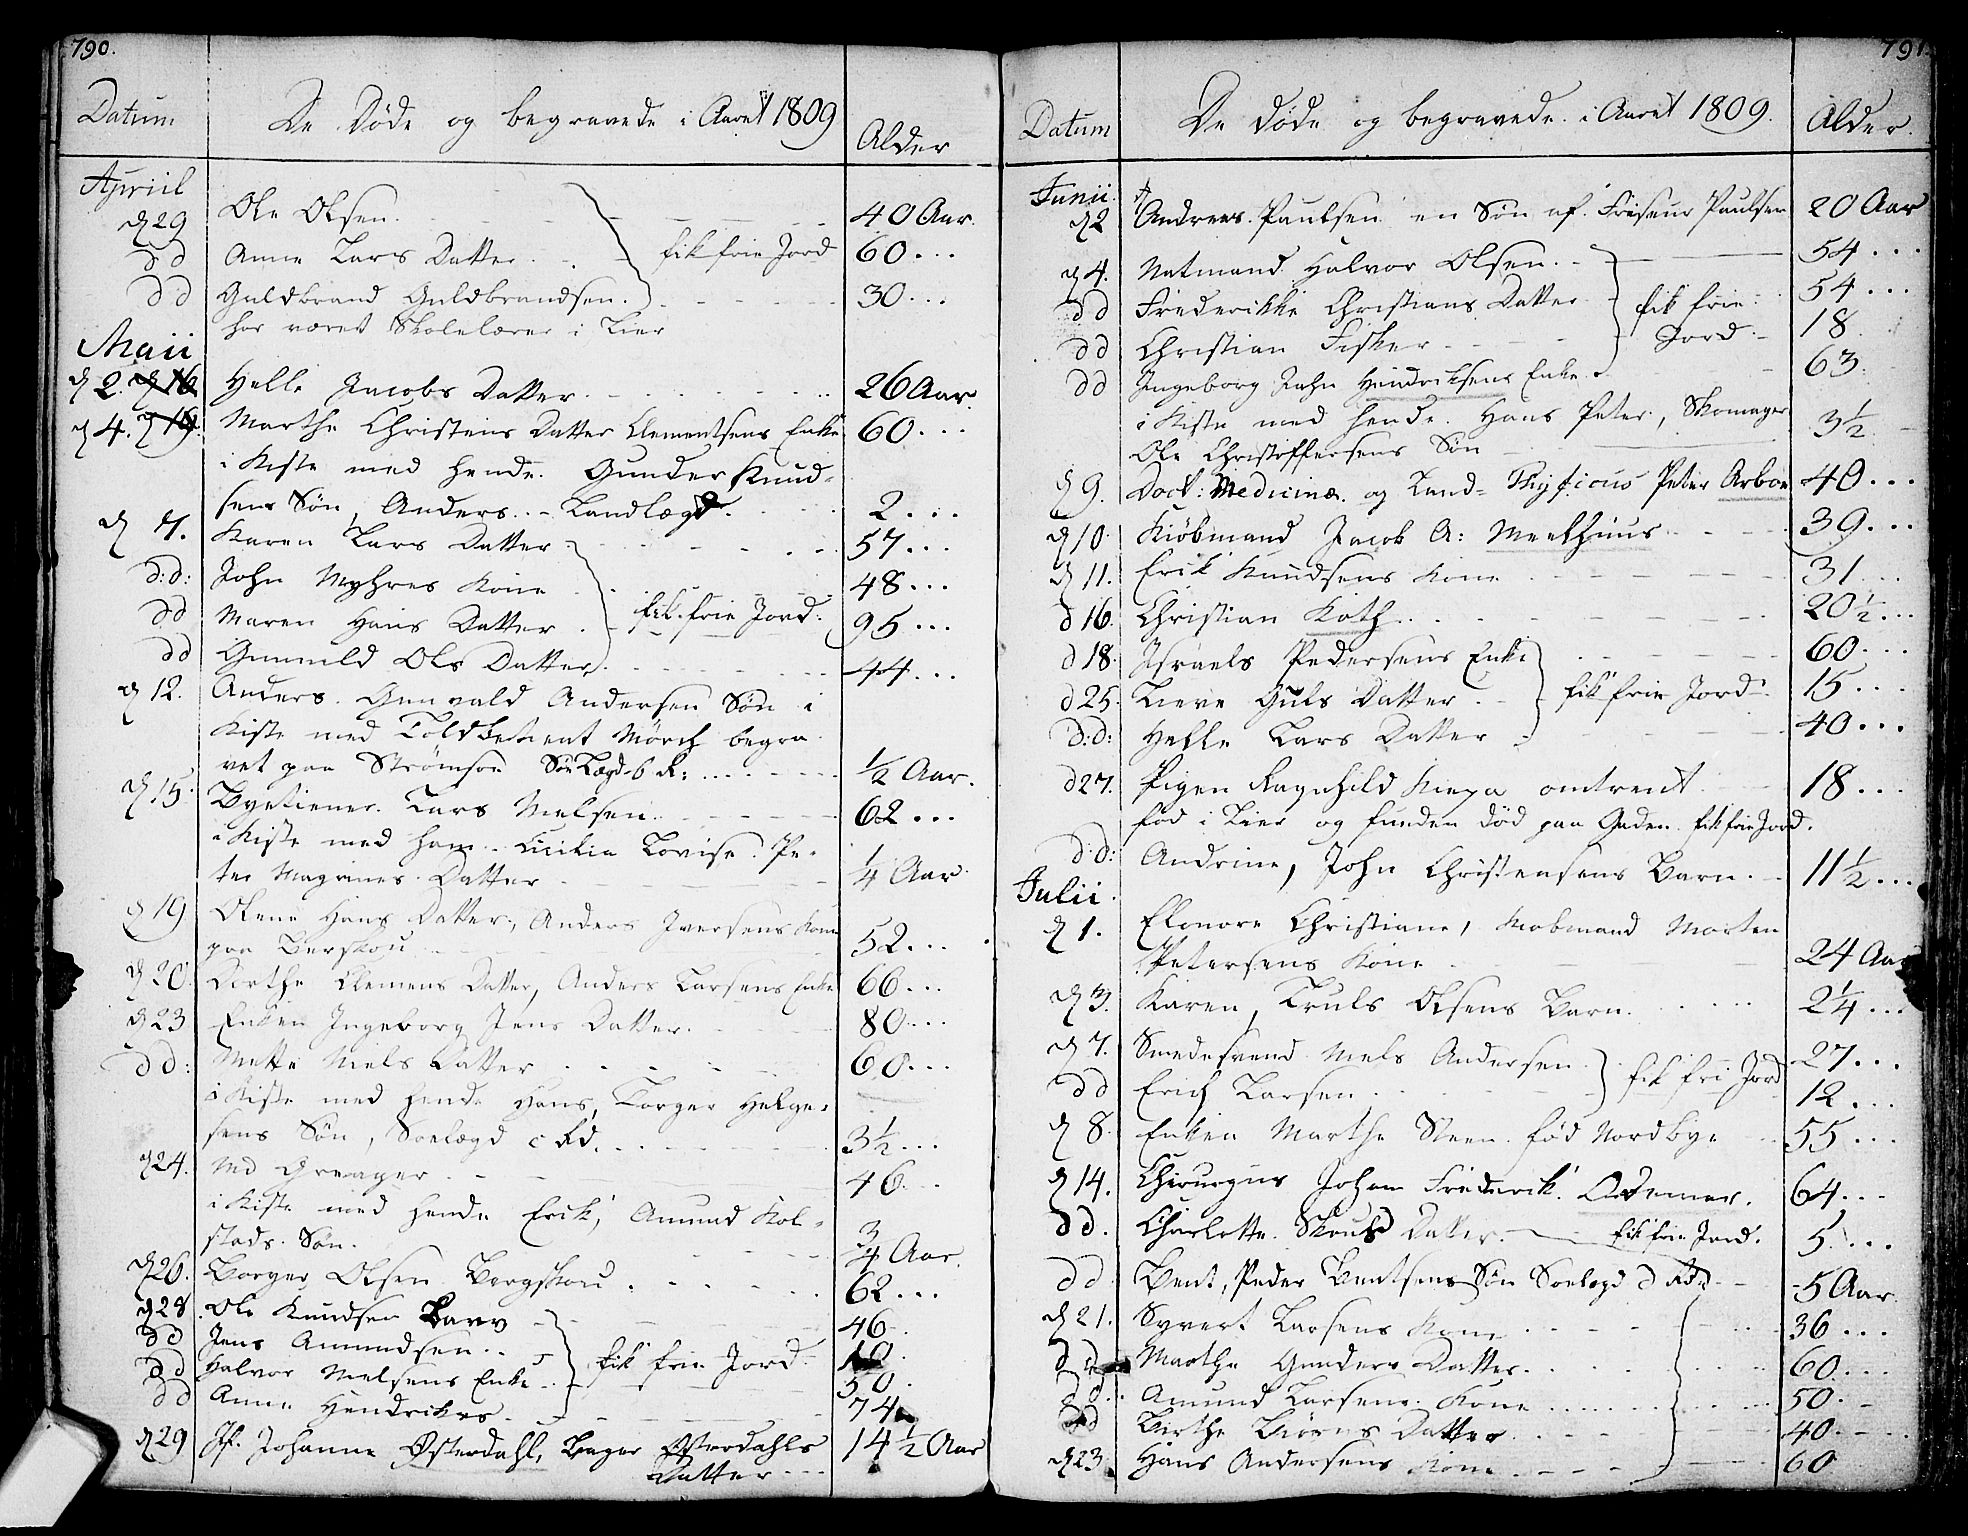 790.
Datum De Døde og begravede i Aaret 1809 Alder
Apriil
d 29 Ole Olsen. 40 Aar.
dd Anne Lars Datter. fik frie Jord 60...
dd Guldbrand Guldbrandsen. 30...
har været Skolelærer i Lier
Maii
d 2. d 16 Helle Jacobs Datter. 26 Aar.
d 4. Marthe Christens Datter Clementsens Enke 60...
i Kiste med hende. Gunder Knud-
sens Søn, Anders. - Landlægd. 2...
d 7. Karen Lars Datter 57...
d:d: John Myhres Kone 48...
dd Maren Hans Datter fik frie Jord. 95...
dd Gunnild Ols Datter. 44...
d 12. Anders. Gunvald Andersen Søn i
Kiste med Toldbetient Mørch begra-
vet paa Strømsøe Søe Lægd 6 R: ½ Aar.
d 15. Byetiener. Lars Nielsen. 62...
i Kiste med ham - Cicilia Lovise. Pe-
ter Datter ¼ Aar.
d 19 Olene Hans Datter, Anders Iversens Kone
paa Berskou 52...
d 20. Dorthe Clemens Datter, Anders Larsens Enke 66...
d 23 Enken Ingeborg Jens Datter. 80...
dd: Mette Niels Datter 60...
i Kiste med hende Hans, Torger Helge-
sens Søn, Soelægd c Rd. 3½...
d 24. Md Greager 46...
i Kiste med hende Erik, Amund Kol-
stads. Søn. ¾ Aar.
d 26. Borger Olsen Bergskou 62...
d 28. Ole Knudsen 46.
dd Jens Amundsen.
dd Halvor Nielsens Enke fik frie Jord. 50.
dd Anne Hendrikes 74
d 29 Jf. Johanne Østerdahl, Bager Østerdahls 14½ Aar
Datter
791.
Datum De døde og begravede i Aaret 1809. Alder.
Junii.
d 2 Andreas Paulsen en Søn af Friseur Paulsen 20 Aar
d 4. Natmand Halvor Olsen. 54...
dd Frederikke Christians Datter fik frie 54...
dd Christian Fisker Jord 18
dd Ingeborg John Hendriksens Enke. 63.
i Kiste med hende. Hans Peter, Skomager
Ole Christoffersens Søn 3½
d 9. Doct: Medicinæ og Land-Phyficus Peter Arboe 40...
d 10. Kiøbmand Jacob A: Meelhuus 39...
d 11. Erik Knudsens Kone 31...
d 16. Christian Koth. 20½...
d 18. Israels Pedersens Enke 60...
d 25. Lieve Guls Datter fik frie Jord. 15...
d:d: Helle Lars Datter 40...
d 27. Pigen Ragnhild Kiepa omtrent 18...
fød i Lier og funden død paa Gaden. fik frie Jord.
d:d: Andrine, John Christensens Barn. 11½...
Julii.
d 1. Elonore Christiane, Kiøbmand Morten
Petersens Kone 24 Aar
d 3. Karen, Truls Olsens Barn. 2¼...
d 7. Smedesvend Niels Andersen. fik fri Jord 27...
dd Erich Larsen. 12...
d 8. Enken Marthe Steen. fød Nordbye 55...
d 14. Chirurgus Johan Friderick 64...
dd. Charlotte Datter. fik frie Jord. 5...
dd Bent, Peder Bentsens Søn Soelægd d Rd. 5 Aar.
d 21. Syvert Larsens Kone 36...
dd Marthe Gunders Datter. 60...
dd Amund Larsens. Kone 50.
dd Birthe Biørns Datter 40.
d 23. Hans Andersens Kone 60